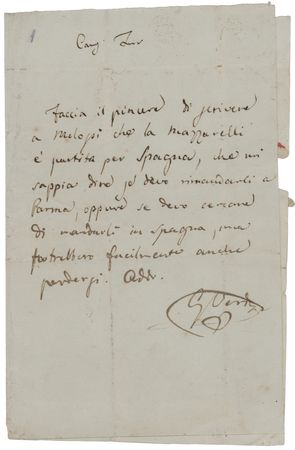 Car
faccia il piacere di scrivere
a Melopi che la Mazzarelli
è partita per Spagna, che mi
sappia dire se devo rimandarli a
Parma, oppure se devo cercare
di mandarli in Spagna, ma
potrebbero facilmente anche
perdersi. Add.
G Verdi